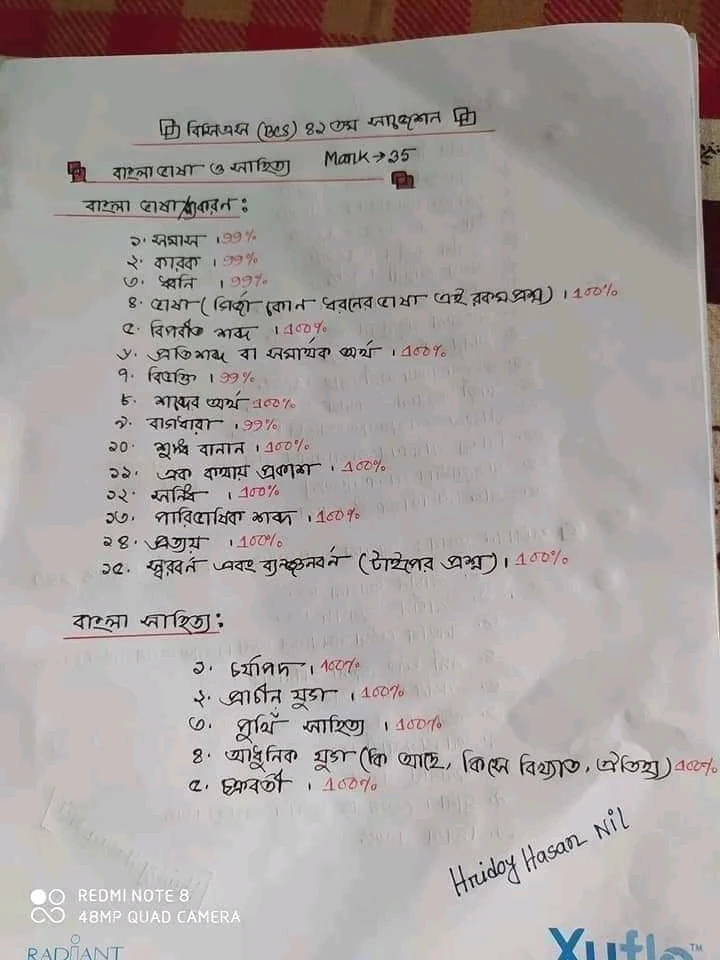 বিসিএস (BCS) ৪২ তম সাজেশন
বাংলা ভাষা ও সাহিত্য Mark → 35
বাংলা ভাষা/ব্যাকরন :
১. সমাস । 99%
২. কারক । 99%
৩. ধ্বনি । 99%
৪. ভাষা ( মির্জা কোন ধরনের ভাষা এই রকম প্রশ্ন ) । 100%
৫. বিপরীত শব্দ । 100%
৬. প্রতিশব্দ বা সমার্থক অর্থ । 100%
৭. বিভক্তি । 99%
৮. শব্দের অর্থ 100%
৯. বাগধারা । 99%
১০. শুদ্ধ বানান । 100%
১১. এক কথায় প্রকাশ । 100%
১২. সন্ধি । 100%
১৩. পারিভাষিক শব্দ । 100%
১৪. প্রত্যয় । 100%
১৫. স্বরবর্ন এবং ব্যনঞ্জনবর্ন (টাইপের প্রশ্ন) । 100%
বাংলা সাহিত্য :
১. চর্যাপদ । 100%
২. প্রাচীন যুগ । 100%
৩. পুথিঁ সাহিত্য । 100%
৪. আধুনিক যুগ (কি আছে, কিসে বিখ্যাত, ঐতিহ্য) 100%
৫. চক্রবর্তী । 100%
Hridoy Hasan Nil
REDMI NOTE 8
48MP QUAD CAMERA
RADIANT